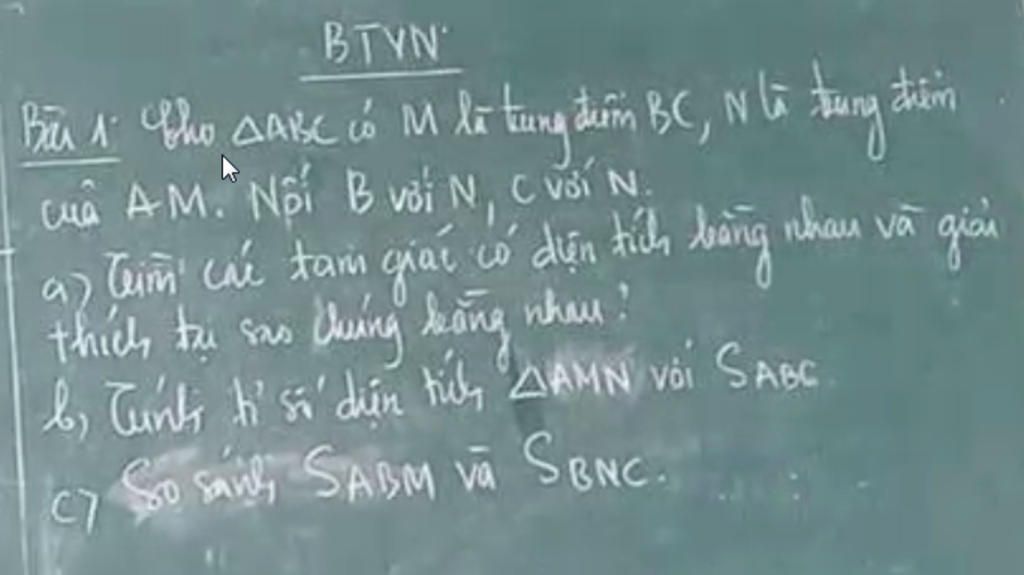 BTVN
Bài 1: Cho △ABC có M là trung điểm BC, N là trung điểm
của AM. Nối B với N, C với N.
a) Tìm các tam giác có diện tích bằng nhau và giải
thích tại sao chúng bằng nhau?
b) Tính tỉ số diện tích △AMN với SABC
c) So sánh SABM và SBNC.